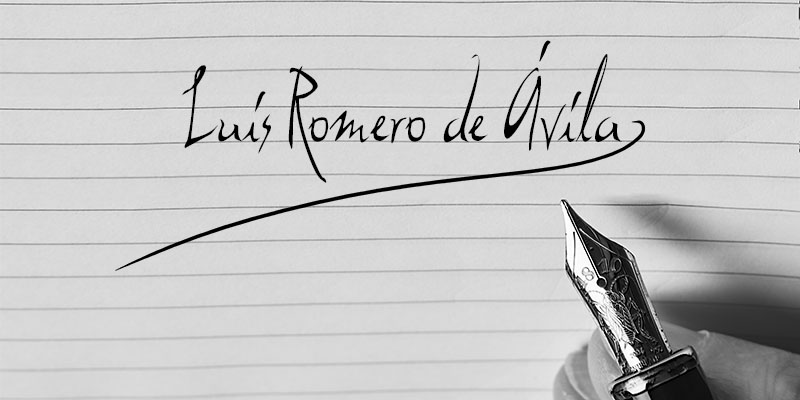 Luís Romero de Ávila